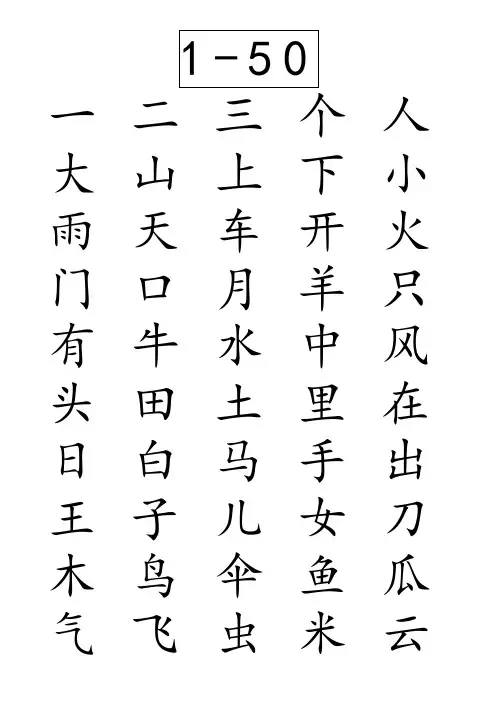 1-50
一 二 三 个 人
大 山 上 下 小
雨 天 车 开 火
门 口 月 羊 只
有 牛 水 中 风
头 田 土 里 在
日 白 马 手 出
王 子 儿 女 刀
木 鸟 伞 鱼 瓜
气 飞 虫 米 云